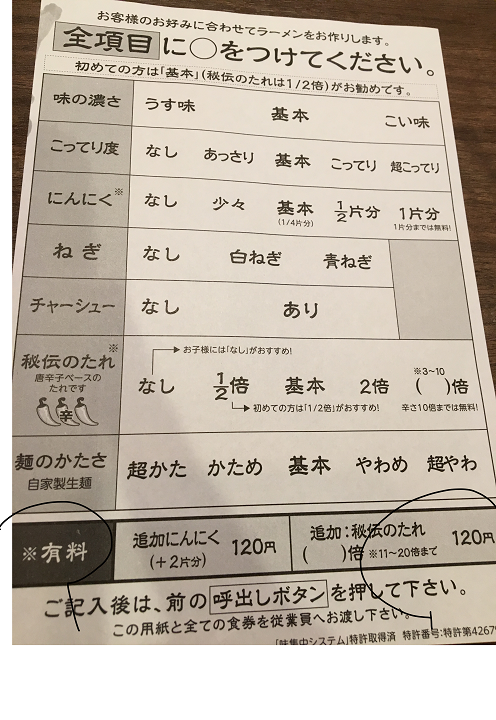 お客様のお好みに合わせてラーメンをお作りします。
全項目に○をつけてください。
初めての方は「基本」(秘伝のたれは1/2倍)がお勧めです。
味の濃さ うす味 基本 こい味
こってり度 なし あっさり 基本 こってり 超こってり
にんにく※ なし 少々 基本 1/2片分 1片分
(1/4片分) 1片分までは無料!
ねぎ なし 白ねぎ 青ねぎ
チャーシュー なし あり
秘伝のたれ※
唐辛子ベースの
たれです
辛
お子様には「なし」がおすすめ!
なし 1/2倍 基本 2倍 ( )倍
※3~10
初めての方は「1/2倍」がおすすめ! 辛さ10倍までは無料!
麺のかたさ 超かた かため 基本 やわめ 超やわ
自家製生麺
※有料
追加にんにく 120円
(+2片分)
追加:秘伝のたれ 120円
( )倍 ※11~20倍まで
ご記入後は、前の呼出しボタンを押して下さい。
この用紙と全ての食券を従業員へお渡し下さい。
「味集中システム」特許取得済 特許番号:特許第4267